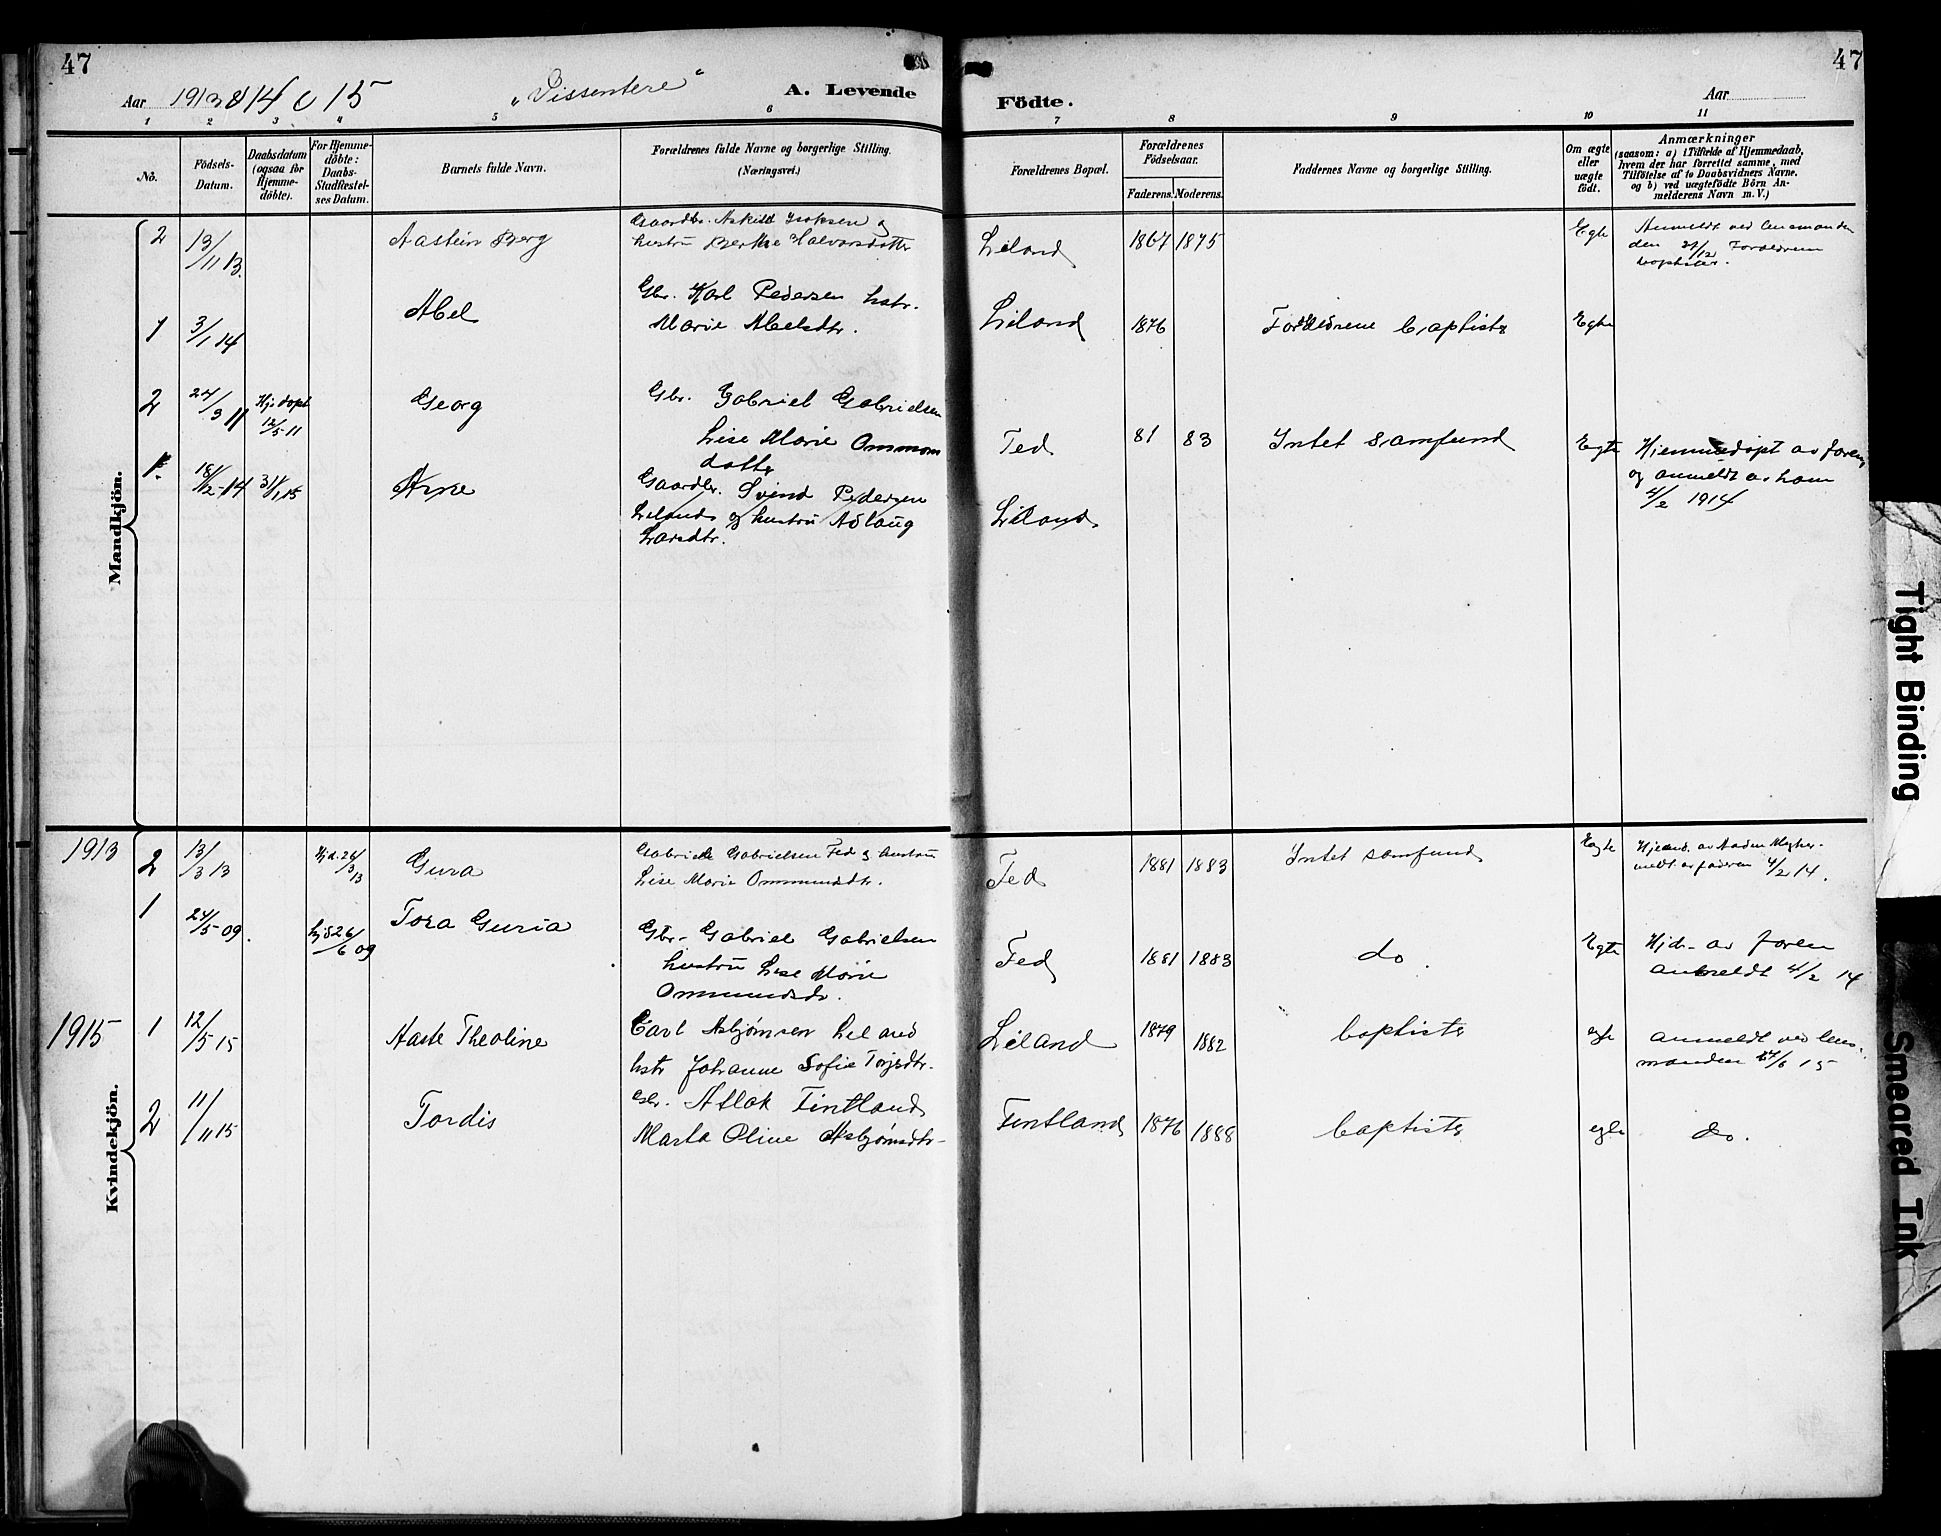 47
47
Aar 1913 & 14 & 15
„Dissentere“
A. Levende
Födte.
Aar
1 2 3 4 5 6 7 8 9 10 11
No.
Födsels-Datum.
Daabsdatum (ogsaa for Hjemme-döbte).
For Hjemme-döbte: Daabs-Stadfæstel-ses Datum.
Barnets fulde Navn.
Forældrenes fulde Navne og borgerlige Stilling. (Næringsvei.)
Forældrenes Bopæl.
Forældrenes Födselsaar.
Faderens. Moderens.
Faddernes Navne og borgerlige Stilling.
Om ægte eller uægte födt.
Anmærkninger
(saasom: a) i Tilfælde af Hjemmedaab,
hvem der har forrettet samme, med
Tilföielse af to Daabsvidners Navne,
og b) ved uægtefödte Börn An-
melderens Navn m. V.)
Mandkjön.
2 13/11 13. Aastein Berg
Gaardbr. Askild Isaksen og
hustru Berthe Halvorsdatter
Liland 1867 1875 Egte
Anmeldt ved
den 29/12 Forældrene
baptister.
1 3/1 14 Abel
Gbr. Karl Pedersen hstr.
Marie Abelsdtr.
Liland 1876 Forældrene baptister Egte
2 24/3 11 Hj. døpt 12/5 11 Georg
Gbr. Gabriel Gabrielsen
Lise Marie Ommun
datter
Fed 81 83 Intet samfund Egte
Hjemmedøpt av faren
og anmeldt av ham
4/2 1914
1. 18/12-14 31/1 15 Arne
Gaardbr. Svend Pedersen
Liland og hustru Aslaug
Larsdtr.
Liland
Kvindekjön.
1913
2 13/3 13 Hjd. 26/3 13 Gura
Gabriel Gabrielsen Fed og hustru
Lise Marie Ommundsdtr.
Fed 1881 1883 Intet samfund Egte
meldt av faderen 4/2 14.
1 24/5-09. hjd 26/6 09 Tora Guria
Gbr. Gabriel Gabrielsen
hustru Lise Marie
Ommundsdr.
Fed 1881 1883 do. Egte
Hjd. av faren
anmeldt 4/2 14
1915
1 12/5 15 Aaste Theoline
Carl Asbjørnsen Liland
hstr Johanne Sofie Torjesdtr.
Liland 1879 1882 baptister egte
anmeldt ved lens-
manden 6 15
2 11/11 15 Tordis
Gbr. Atlak Fintland
Marta Oline Asbjørnsdtr-
Fintland 1876 1888 baptister egte do.
Tight Binding
Smeared Ink